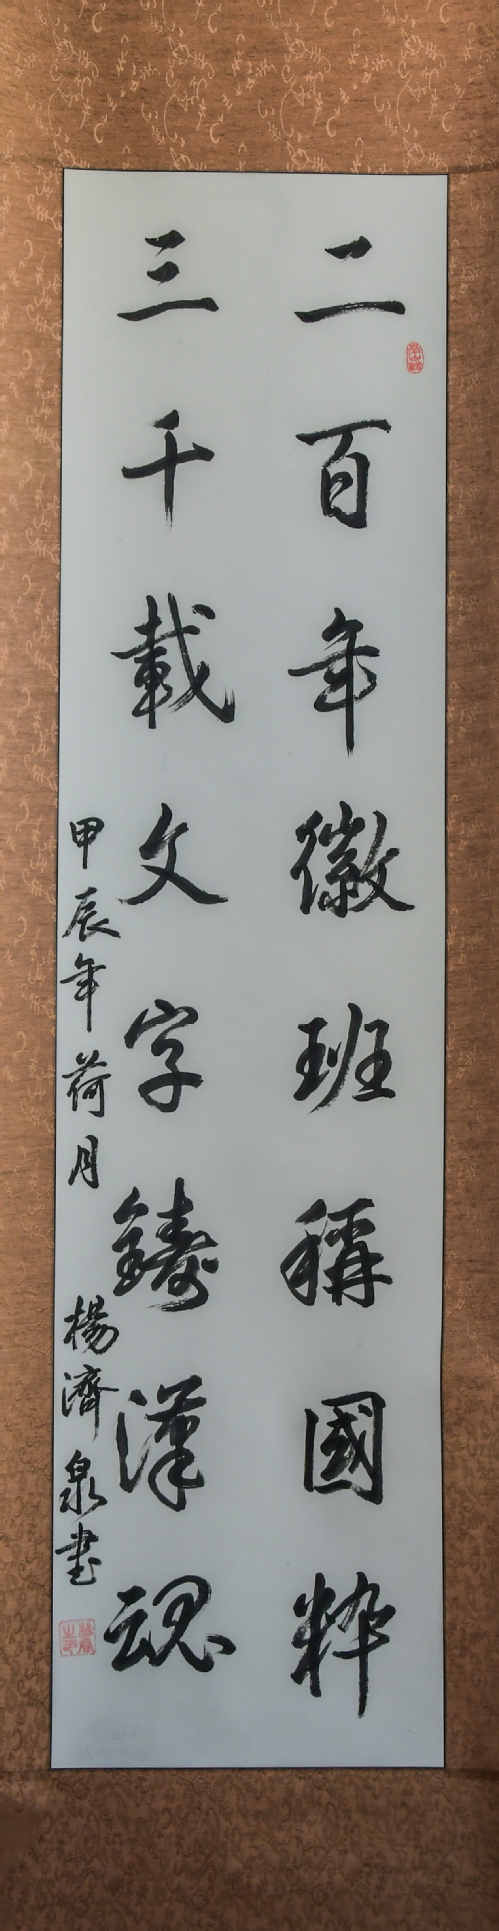 二百年徽班稱國粹
三千載文字鑄漢魂
甲辰年荷月 楊濟泉書